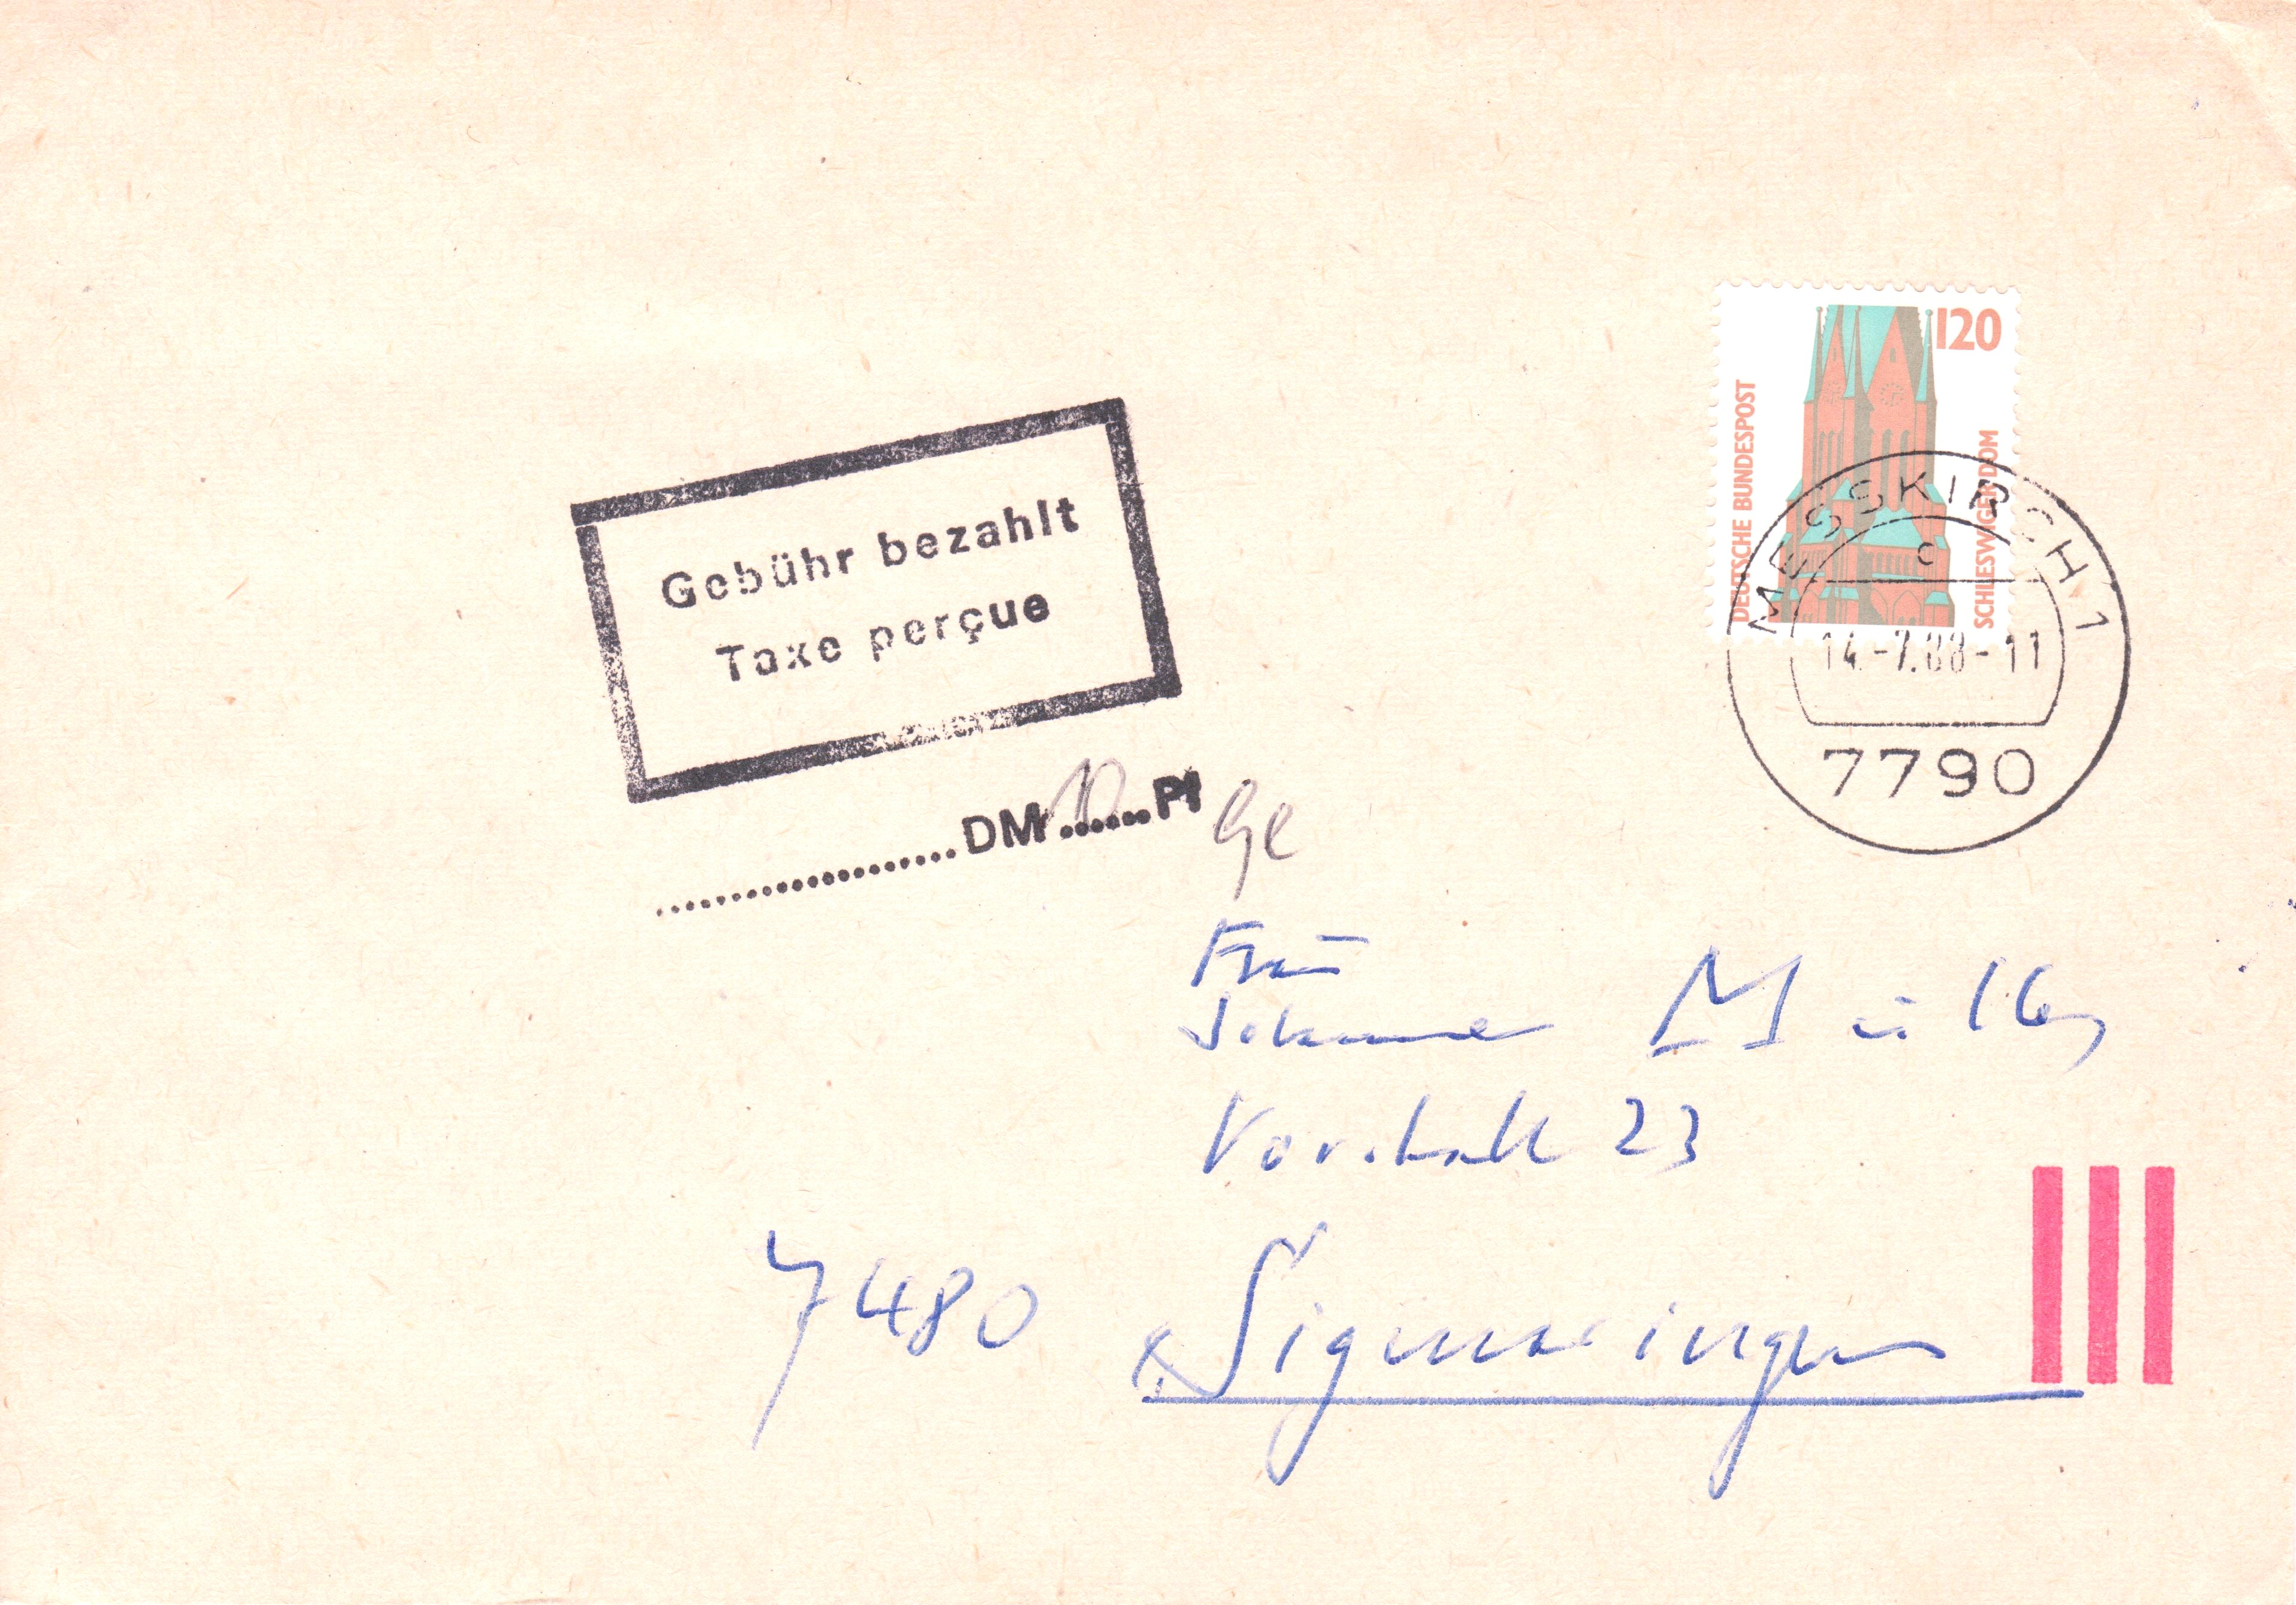 120
DEUTSCHE BUNDESPOST
SCHLESWIGER DOM
MESSKIRCH 1
c
14.-7.88-11
7790
Gebühr bezahlt
Taxe perçue
DM 10 Pf
Frau
Johanna Müller
23
7480 Sigmaringen